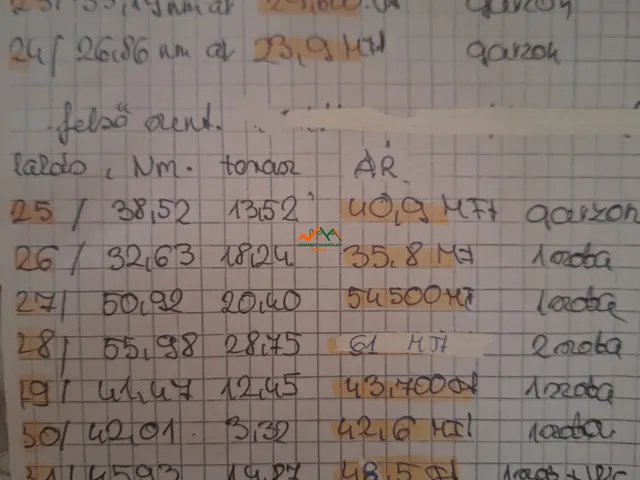 24/ 26,86 nm ár 23,9 MFt garzon
felső szint.
Lakás, Nm. terasz ÁR.
25 / 38,52 13,52 40,9 MFt garzon
26 / 32,63 18,24 35.8 MFt 1szoba
27/ 50,92 20,40 54500 Ft 1szoba
28/ 55,98 28,75 61 MFt 2szoba
29/ 41,47 12,45 43,700 1szoba
30/ 42,01. 3,32 42,6 MFt 1szoba
31/ 4593 14,87 48,5